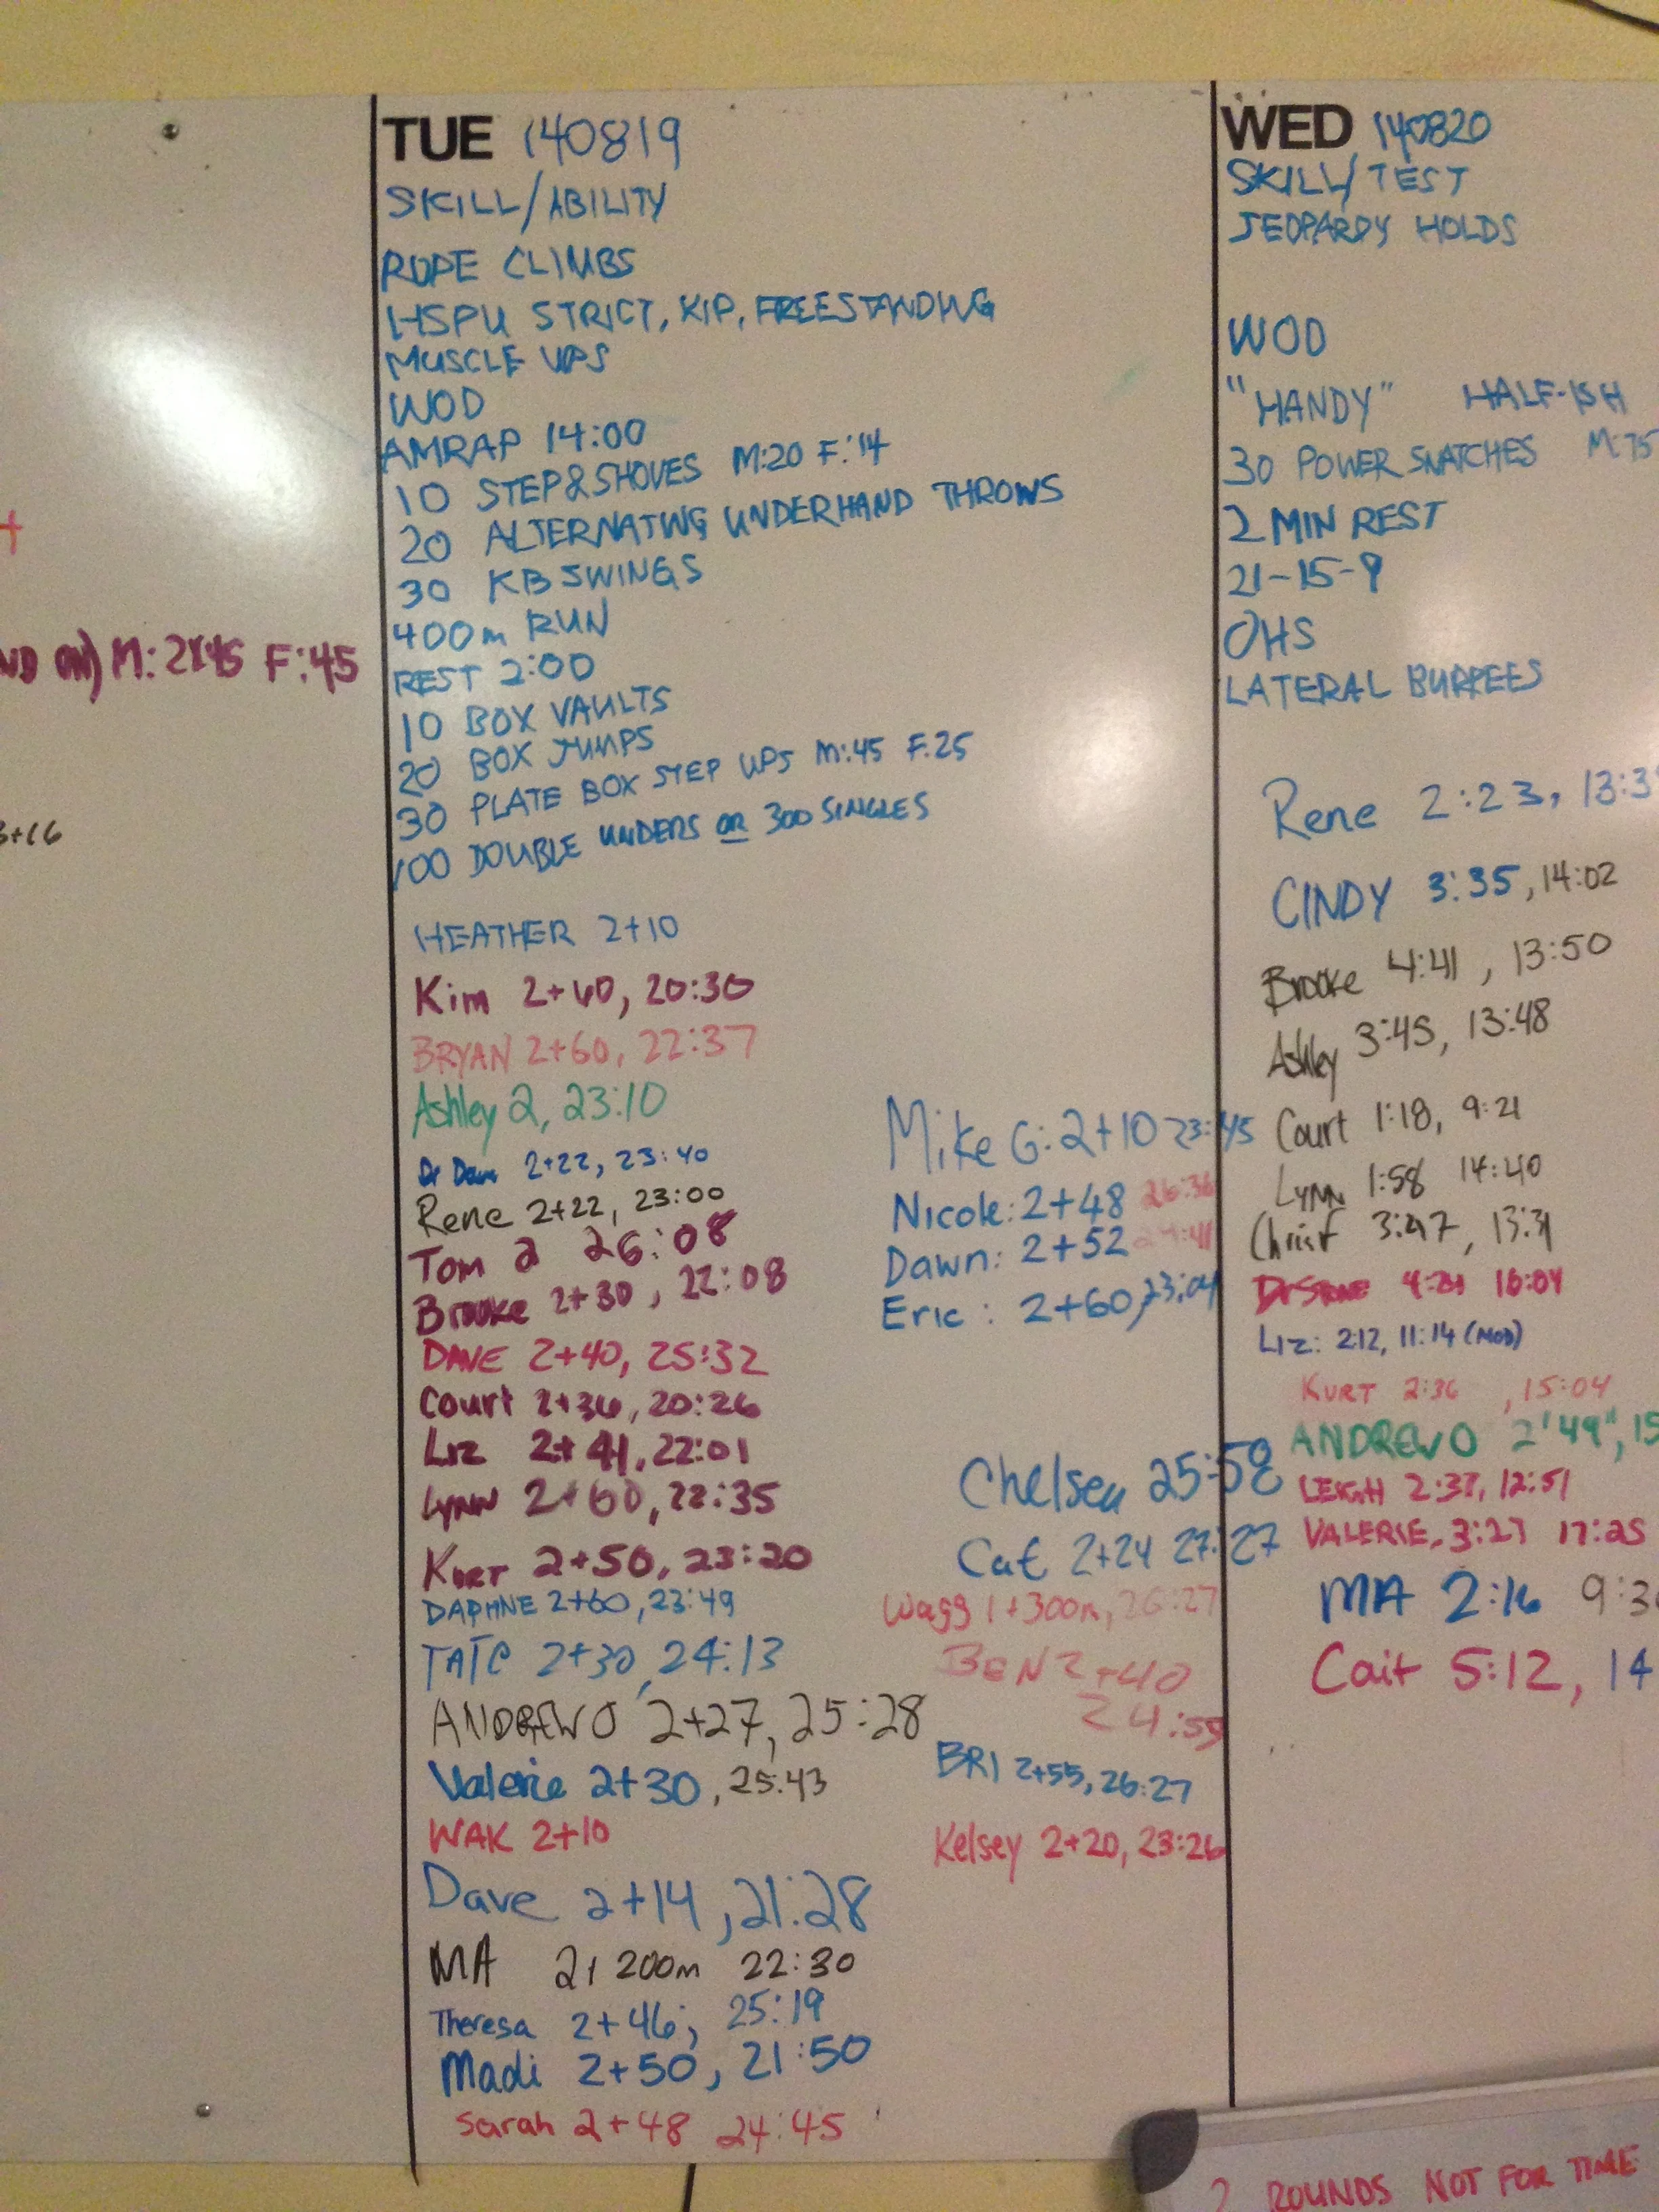 +
M: 2X45 F:45
3+16
TUE 140819
SKILL/ABILITY
ROPE CLIMBS
HSPU STRICT, KIP, FREESTANDING
MUSCLE UPS
WOD
AMRAP 14:00
10 STEP&SHOVES M:20 F:14
20 ALTERNATING UNDERHAND THROWS
30 KB SWINGS
400m RUN
REST 2:00
10 BOX VAULTS
20 BOX JUMPS
30 PLATE BOX STEP UPS M:45 F:25
100 DOUBLE UNDERS OR 300 SINGLES
HEATHER 2+10
Kim 2+40, 20:30
BRYAN 2+60, 22:37
Ashley 2, 23:10
Dr Dave 2+22, 23:40
Rene 2+22, 23:00
Tom 2 26:08
Brooke 2+30, 22:08
DAVE 2+40, 25:32
Court 2+36, 20:26
Liz 2+41, 22:01
Lynn 2+60, 22:35
Kurt 2+50, 23:20
DAPHNE 2+60, 23:49
TATE 2+30, 24:13
ANDREW O 2+27, 25:28
Valerie 2+30, 25:43
WAK 2+10
Dave 2+14, 21:28
MA 2+ 200m 22:30
Theresa 2+46, 25:19
Madi 2+50, 21:50
Sarah 2+48 24:45
Mike G: 2+10 23:45
Nicole: 2+48 26:36
Dawn: 2+52
Eric: 2+60, 23:04
Chelsea 25:58
Cat 2+24 27:27
Wagg 1+300m, 26:27
BEN 2+40
24:59
BRI 2+55, 26:27
Kelsey 2+20, 23:26
WED 140820
SKILL/TEST
JEOPARDY HOLDS
WOD
"HANDY" HALF-ISH
30 POWER SNATCHES M:75
2 MIN REST
21-15-9
OHS
LATERAL BURPEES
Rene 2:23, 13:3
CINDY 3:35, 14:02
Brooke 4:41, 13:50
Ashley 3:45, 13:48
Court 1:18, 9:21
Lynn 1:58 14:40
Christ 3:47, 13:31
Dr Stone 16:04
Liz: 2:12, 11:14 (MOD)
KURT 2:36, 15:04
ANDREW O 2'49", 15
LEIGH 2:37, 12:51
VALERIE, 3:27 17:25
MA 2:16 9:3
Cait 5:12, 14
2 ROUNDS NOT FOR TIME